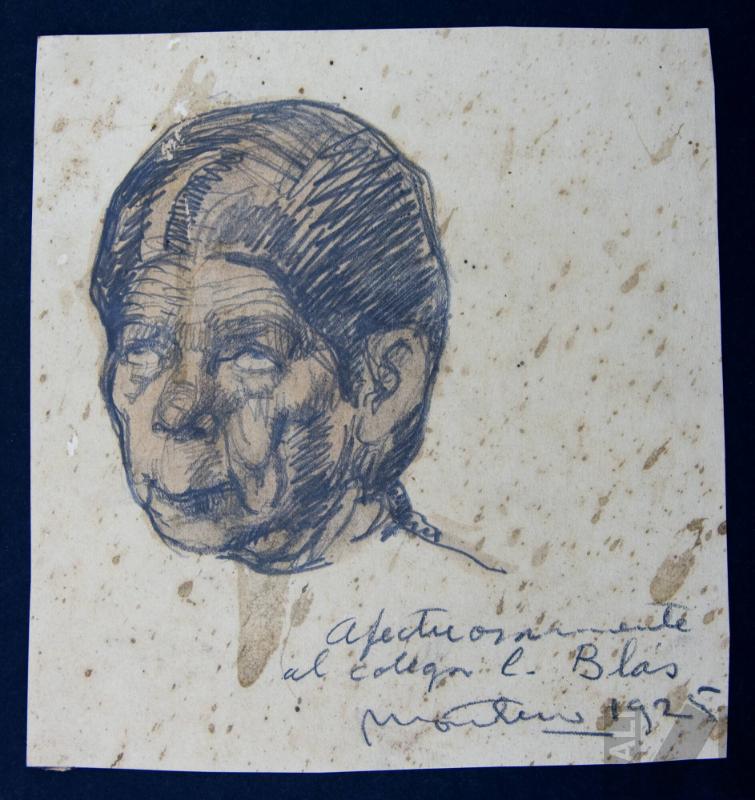 Afectuosamente
al colega C. Blas
Montero 1925
ALI